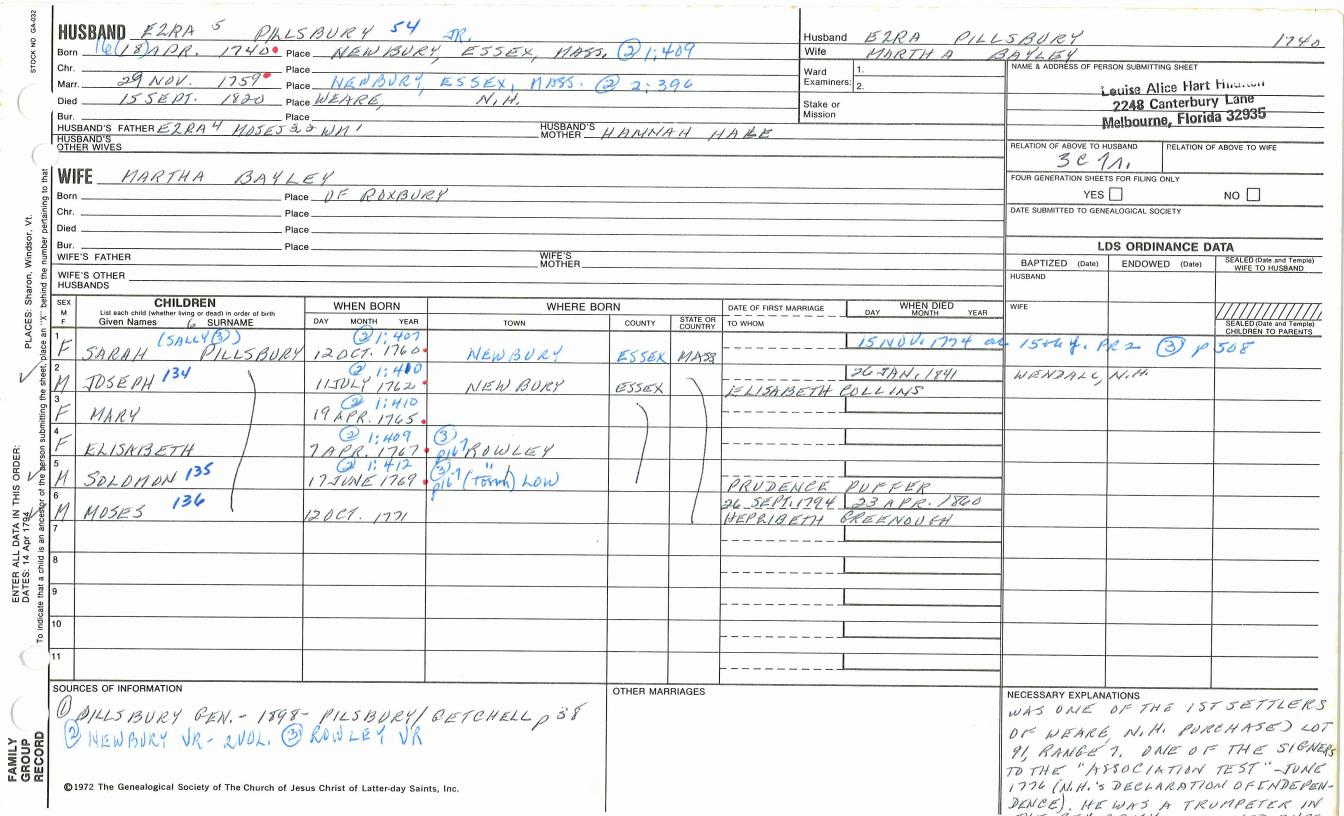 STOCK NO. GA-032
HUSBAND EZRA 5 PILLSBURY 54 JR.
Born 16(18) APR. 1740 Place NEWBURY, ESSEX, MASS. ② 1:409
Chr. Place
Marr. 29 NOV. 1759 Place NEWBURY, ESSEX, MASS. ② 2:396
Died 15 SEPT. 1820 Place WEARE, N.H.
Bur. Place
HUSBAND'S FATHER EZRA 4 MOSES WM 1 HUSBAND'S MOTHER HANNAH HALE
HUSBAND'S OTHER WIVES
Husband EZRA PILLSBURY 1740
Wife MARTHA BAYLEY
Ward Examiners: 1.
2.
Stake or Mission
NAME & ADDRESS OF PERSON SUBMITTING SHEET
Louise Alice Hart
2248 Canterbury Lane
Melbourne, Florida 32935
RELATION OF ABOVE TO HUSBAND RELATION OF ABOVE TO WIFE
3C 7R.
FOUR GENERATION SHEETS FOR FILING ONLY
YES NO
DATE SUBMITTED TO GENEALOGICAL SOCIETY
WIFE MARTHA BAYLEY
Born Place OF ROXBURY
Chr. Place
Died Place
Bur. Place
WIFE'S FATHER WIFE'S MOTHER
WIFE'S OTHER HUSBANDS
LDS ORDINANCE DATA
BAPTIZED (Date) ENDOWED (Date) SEALED (Date and Temple) WIFE TO HUSBAND
HUSBAND
WIFE
SEALED (Date and Temple) CHILDREN TO PARENTS
SEX M F
CHILDREN
List each child (whether living or dead) in order of birth
Given Names 6 SURNAME
WHEN BORN
DAY MONTH YEAR
WHERE BORN
TOWN COUNTY STATE OR COUNTRY
DATE OF FIRST MARRIAGE
TO WHOM
WHEN DIED
DAY MONTH YEAR
1 (SALLY ③) ② 1:407 15 NOV. 1774 ae 15th y. PR2 ③ p 508
F SARAH PILLSBURY 12 OCT. 1760 NEWBURY ESSEX MASS
2 ② 1:410 26 JAN. 1841 WENDALL, N.H.
M JOSEPH 134 11 JULY 1762 NEWBURY ESSEX ELISABETH COLLINS
3 ② 1:410
F MARY 19 APR. 1765
4 ② 1:409 ③
F ELISABETH 7 APR. 1767 p167 ROWLEY
5 ② 1:412 ③ "
M SOLOMON 135 17 JUNE 1769 p167 (Torm) LOW PRUDENCE PUFFER
6 136 26 SEPT. 1794 23 APR. 1860
M MOSES 12 OCT. 1771 HEPRIBETH GREENOUGH
7
8
9
10
11
SOURCES OF INFORMATION
① PILLSBURY GEN. - 1898 - PILSBURY/GETCHELL p 58
② NEWBURY VR - 2 VOL. ③ ROWLEY VR
©1972 The Genealogical Society of The Church of Jesus Christ of Latter-day Saints, Inc.
OTHER MARRIAGES
NECESSARY EXPLANATIONS
WAS ONE OF THE 1ST SETTLERS
OF WEARE, N.H. PURCHASED LOT
91, RANGE 7. ONE OF THE SIGNERS
TO THE "ASSOCIATION TEST" - JUNE
1776 (N.H.'S DECLARATION OF INDEPEN-
DENCE). HE WAS A TRUMPETER IN
FAMILY GROUP RECORD
ENTER ALL DATA IN THIS ORDER:
DATES: 14 Apr 1794
PLACES: Sharon, Windsor, Vt.
To indicate that a child is an ancestor of the person submitting the sheet, place an "X" behind the number pertaining to that